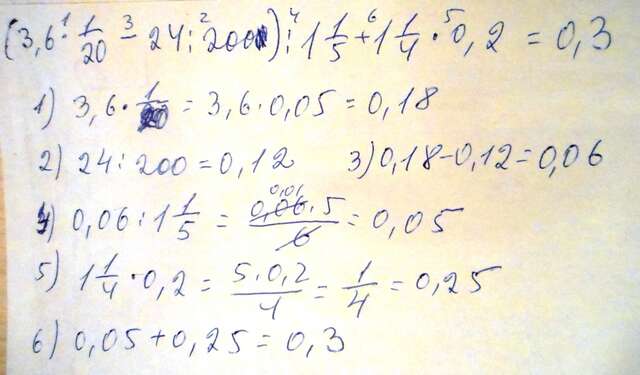 (3,6 : 1/20 - 24 : 200) : 1 1/5 + 1 1/4 · 0,2 = 0,3
1) 3,6 · 1/20 = 3,6 · 0,05 = 0,18
2) 24 : 200 = 0,12 3) 0,18 - 0,12 = 0,06
4) 0,06 : 1 1/5 = 0,06 · 5 / 6 = 0,05
5) 1 1/4 · 0,2 = 5 · 0,2 / 4 = 1/4 = 0,25
6) 0,05 + 0,25 = 0,3